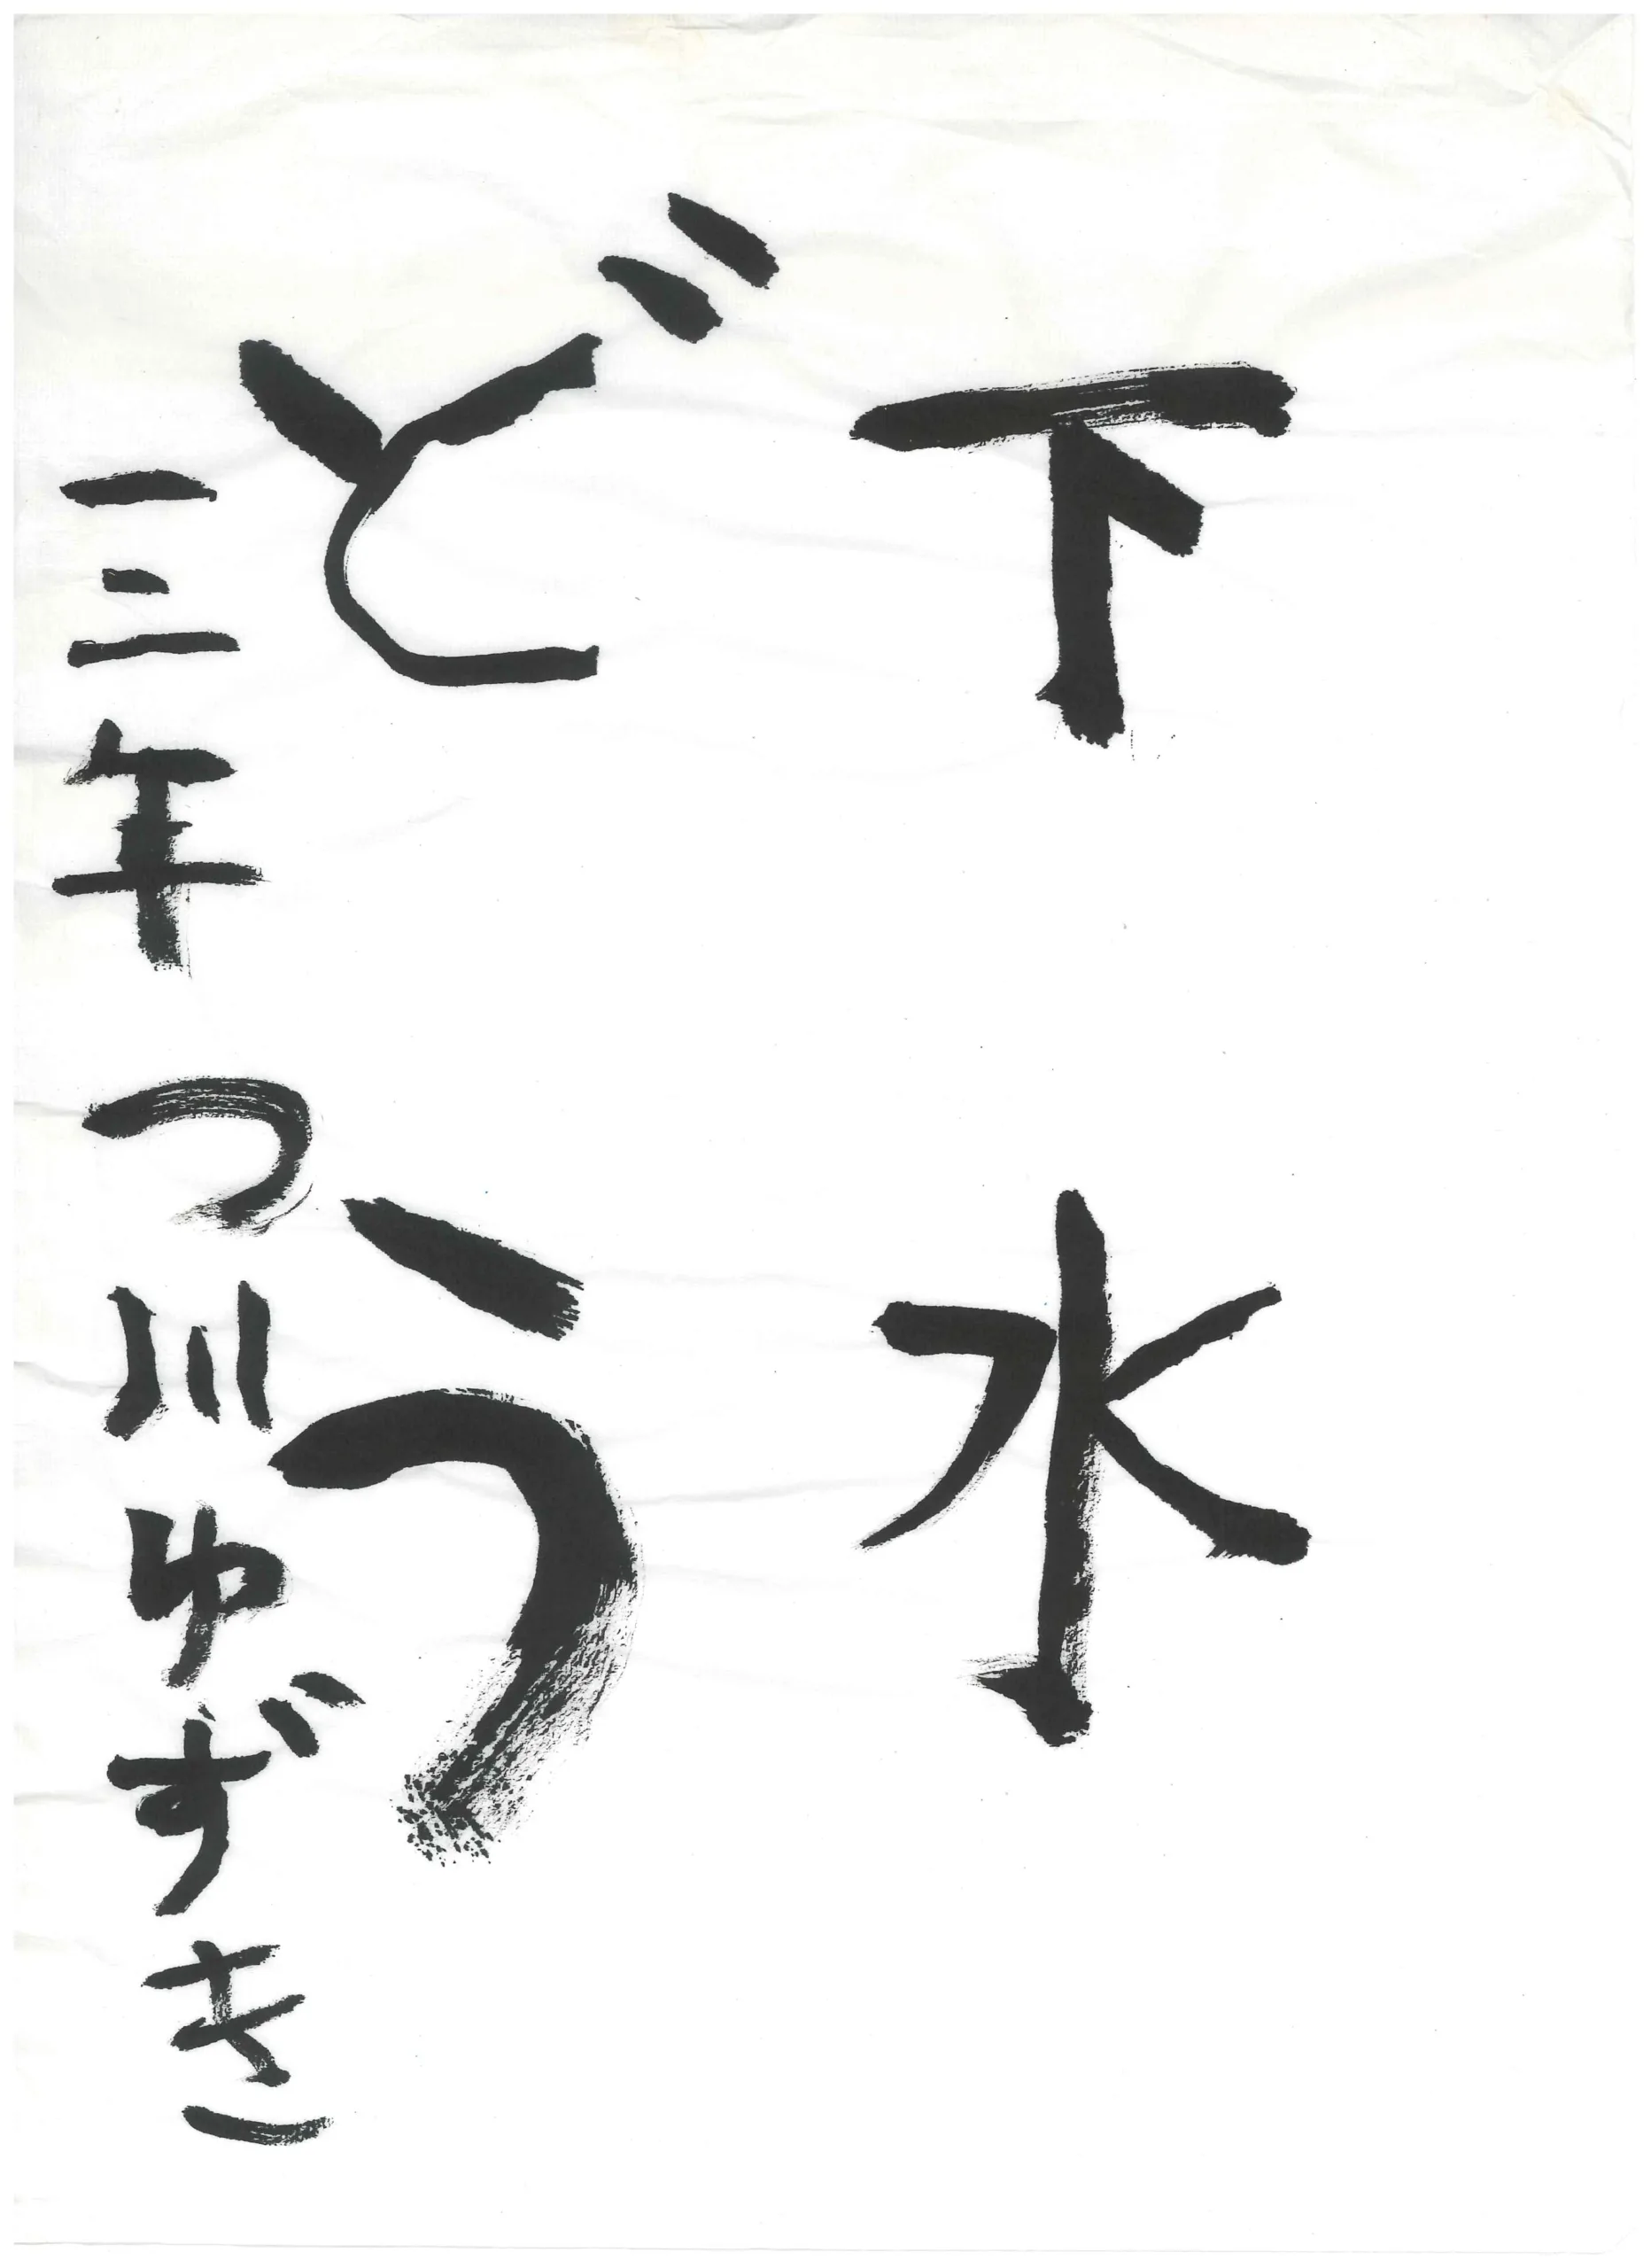 下水
どう
三年 つ川ゆずき